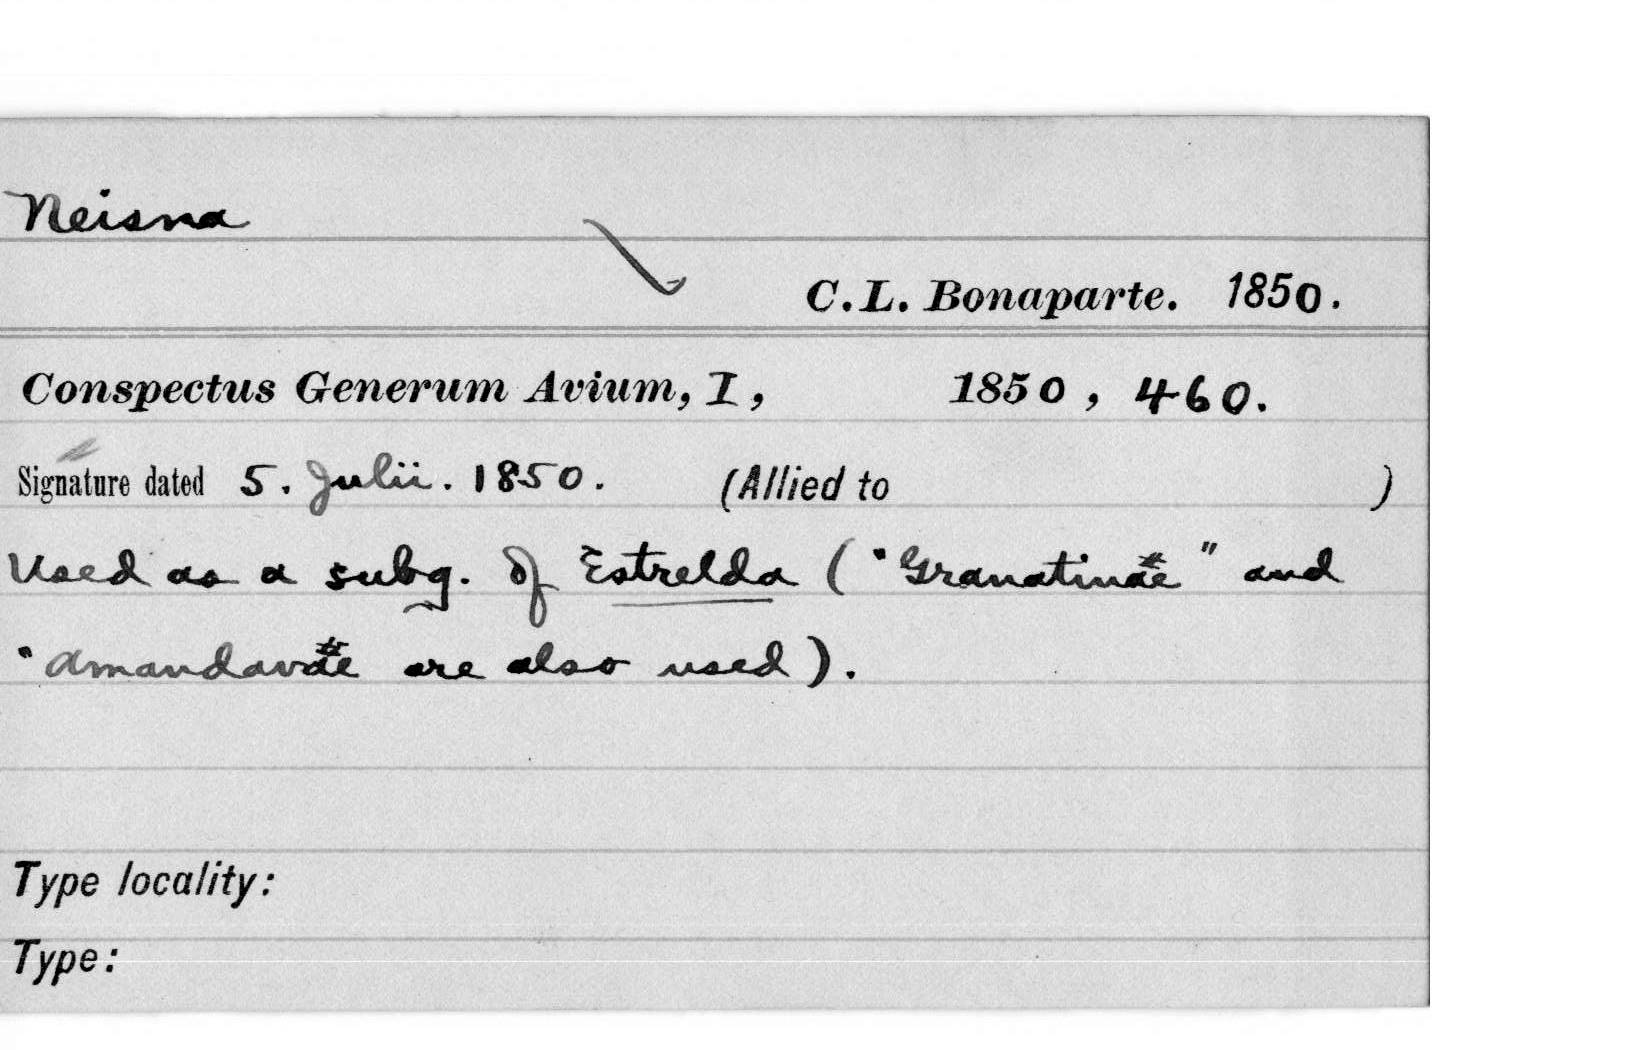 Neisna
C.L. Bonaparte. 1850.
Conspectus Generum Avium, I, 1850, 460.
Signature dated 5. Julii. 1850. (Allied to )
Used as a subg. of Estrelda ("Granatinae" and
"Amandavae are also used).
Type locality:
Type: